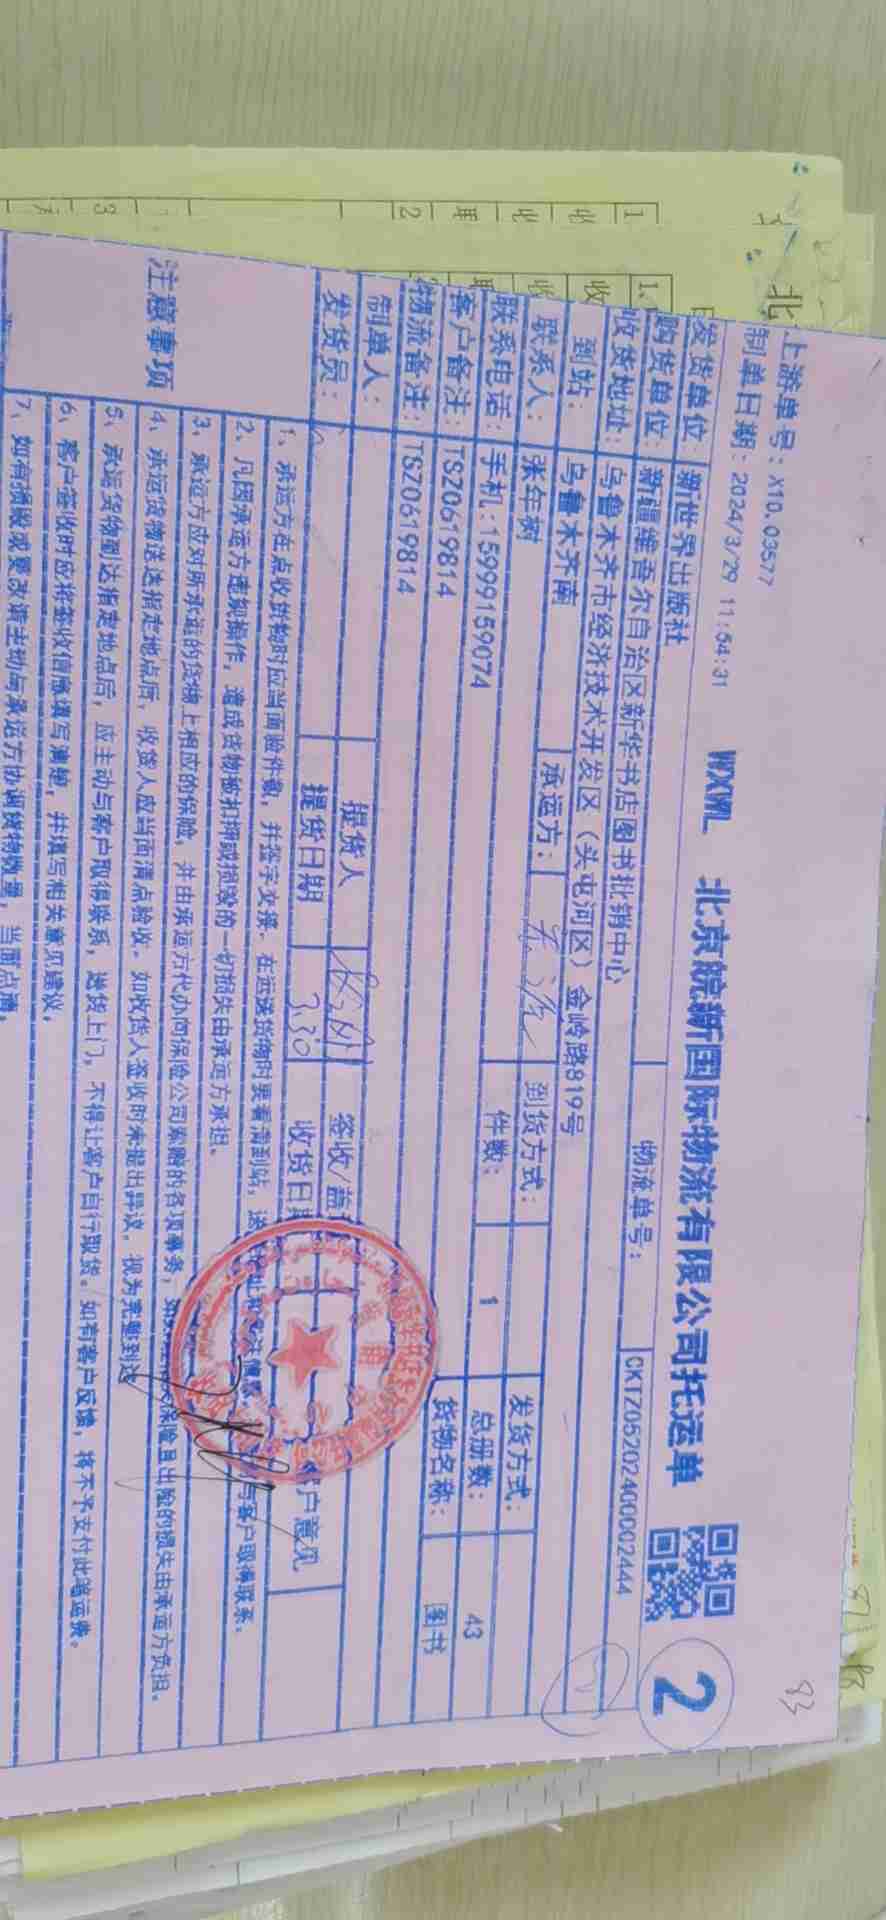 上游单号：X10.03577
制单日期：2024/3/29 11:54:31
WXWL 北京皖新国际物流有限公司托运单
2
发货单位：新世界出版社
物流单号：CKTZ05202400002444
购货单位：新疆维吾尔自治区新华书店图书批销中心
收货地址：乌鲁木齐市经济技术开发区（头屯河区）金岭路819号
到站：乌鲁木齐南 承运方： 到货方式： 发货方式：
联系人：张年树 件数：1 总册数：43
联系电话：手机：15999159074 货物名称：图书
客户备注：TSZ0619814
物流备注：TSZ0619814
制单人： 提货人 签收/盖 客户意见
发货员： 提货日期 3.30 收货日期
注意事项
1、承运方在点收货物时应当面验件数，并签字交接。在运送货物时要看清到站，送
与客户取得联系。
2、凡因承运方违规操作，造成货物被扣押或损毁的一切损失由承运方承担。
3、承运方应对所承运的货物上相应的保险，并由承运方代办向保险公司索赔的各项事务，
保险且出险的损失由承运方负担。
4、承运货物送达指定地点后，收货人应当面清点验收。如收货人签收时未提出异议，视为完整到达
5、承运货物到达指定地点后，应主动与客户取得联系，送货上门，不得让客户自行取货。如有客户反馈，将不予支付此笔运费。
6、客户签收时应将签收信息填写清楚，并填写相关意见建议。
7、如有损毁或更改请主动与承运方协调货物数量，当面点清。
93